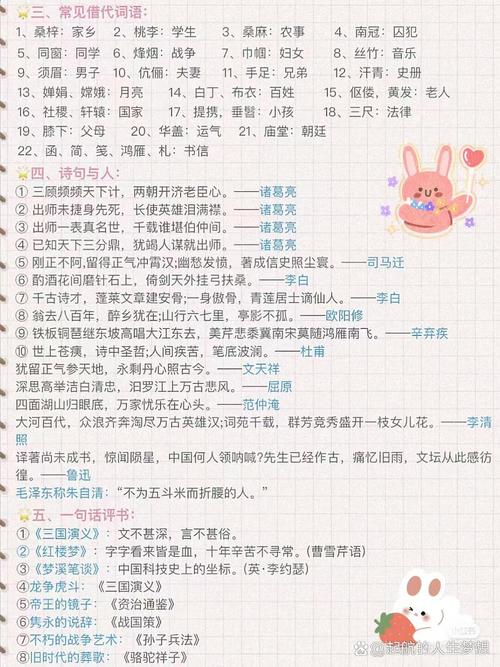 三、常见借代词语：
1、桑梓：家乡 2、桃李：学生 3、桑麻：农事 4、南冠：囚犯
5、同窗：同学 6、烽烟：战争 7、巾帼：妇女 8、丝竹：音乐
9、须眉：男子 10、伉俪：夫妻 11、手足：兄弟 12、汗青：史册
13、婵娟、嫦娥：月亮 14、白丁、布衣：百姓 15、伛偻，黄发：老人
16、社稷、轩辕：国家 17、提携，垂髫：小孩 18、三尺：法律
19、膝下：父母 20、华盖：运气 21、庙堂：朝廷
22、函、简、笺、鸿雁、札：书信
四、诗句与人：
① 三顾频频天下计，两朝开济老臣心。——诸葛亮
② 出师未捷身先死，长使英雄泪满襟。——诸葛亮
③ 出师一表真名世，千载谁堪伯仲间。——诸葛亮
④ 已知天下三分鼎，犹竭人谋就出师。——诸葛亮
⑤ 刚正不阿,留得正气冲霄汉;幽愁发愤，著成信史照尘寰。——司马迁
⑥ 酌酒花间磨针石上，倚剑天外挂弓扶桑。——李白
⑦ 千古诗才，蓬莱文章建安骨;一身傲骨，青莲居士谪仙人。——李白
⑧ 翁去八百年，醉乡犹在;山行六七里，亭影不孤。——欧阳修
⑨ 铁板铜琶继东坡高唱大江东去，美芹悲黍冀南宋莫随鸿雁南飞。——辛弃疾
⑩ 世上苍痍，诗中圣哲;人间疾苦，笔底波澜。——杜甫
犹留正气参天地，永剩丹心照古今。——文天祥
深思高举洁白清忠，汨罗江上万古悲风。——屈原
四面湖山归眼底，万家忧乐在心头。——范仲淹
大河百代，众浪齐奔淘尽万古英雄汉;词苑千载，群芳竞秀盛开一枝女儿花。——李清
照
译著尚未成书，惊闻陨星，中国何人领呐喊?先生已经作古，痛忆旧雨，文坛从此感彷
徨。——鲁迅
毛泽东称朱自清：“不为五斗米而折腰的人。”
五、一句话评书：
①《三国演义》：文不甚深，言不甚俗。
②《红楼梦》：字字看来皆是血，十年辛苦不寻常。(曹雪芹语)
③《梦溪笔谈》：中国科技史上的坐标。(英·李约瑟)
④龙争虎斗：《三国演义》
⑤帝王的镜子：《资治通鉴》
⑥隽永的说辞：《战国策》
⑦不朽的战争艺术：《孙子兵法》
⑧旧时代的葬歌：《骆驼祥子》
小红书
@起航的人生梦想